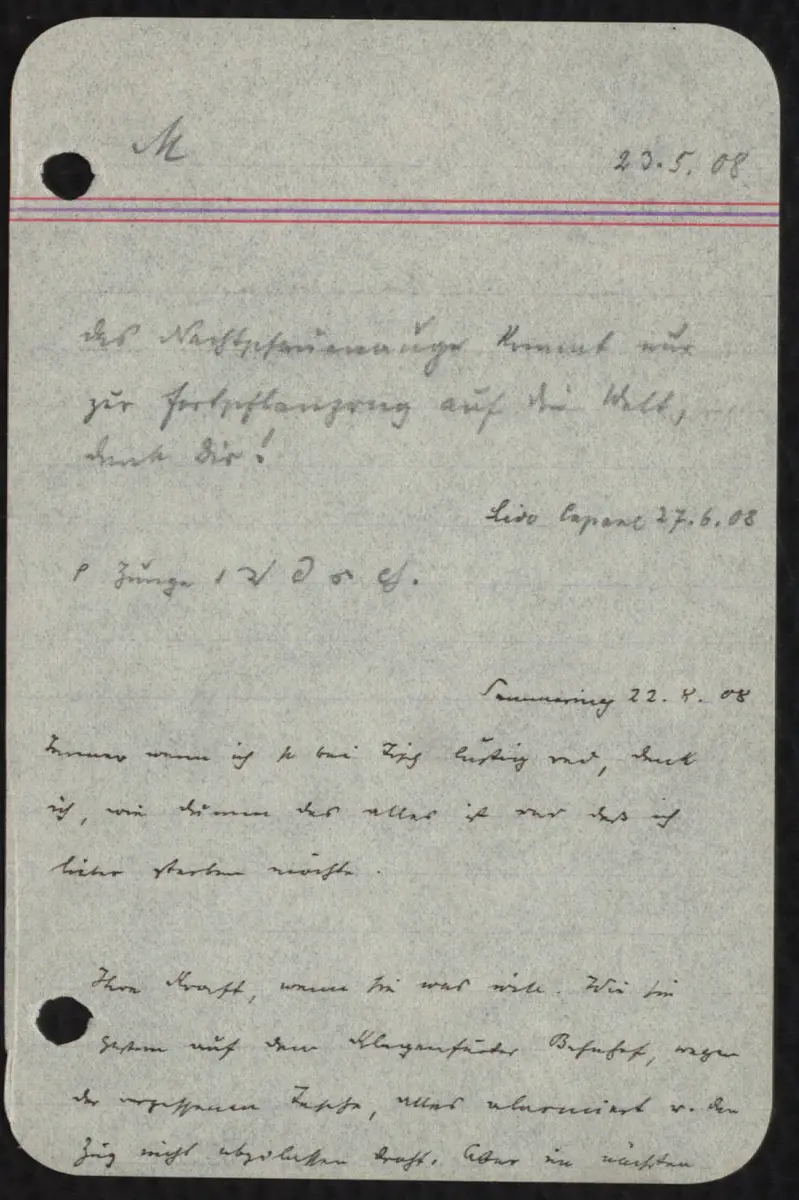 M
23.5.08
das Nachtpfauenauge kommt nur
zur Fortpflanzung auf die Welt,
denk Dir!
Lido 27.6.08
Zunge
Semmering 22. 8. 08
Immer wenn ich so bei Tisch lustig red, denk
ich, wie dumm das alles ist und daß ich
lieber sterben möchte.
Ihre Kraft, wenn sie was will. Wie sie
gestern auf dem Klagenfurter Bahnhof, wegen
der vergessenen Tasche, alles alarmiert u. den
Zug nicht abzulassen droht. Aber im nächsten